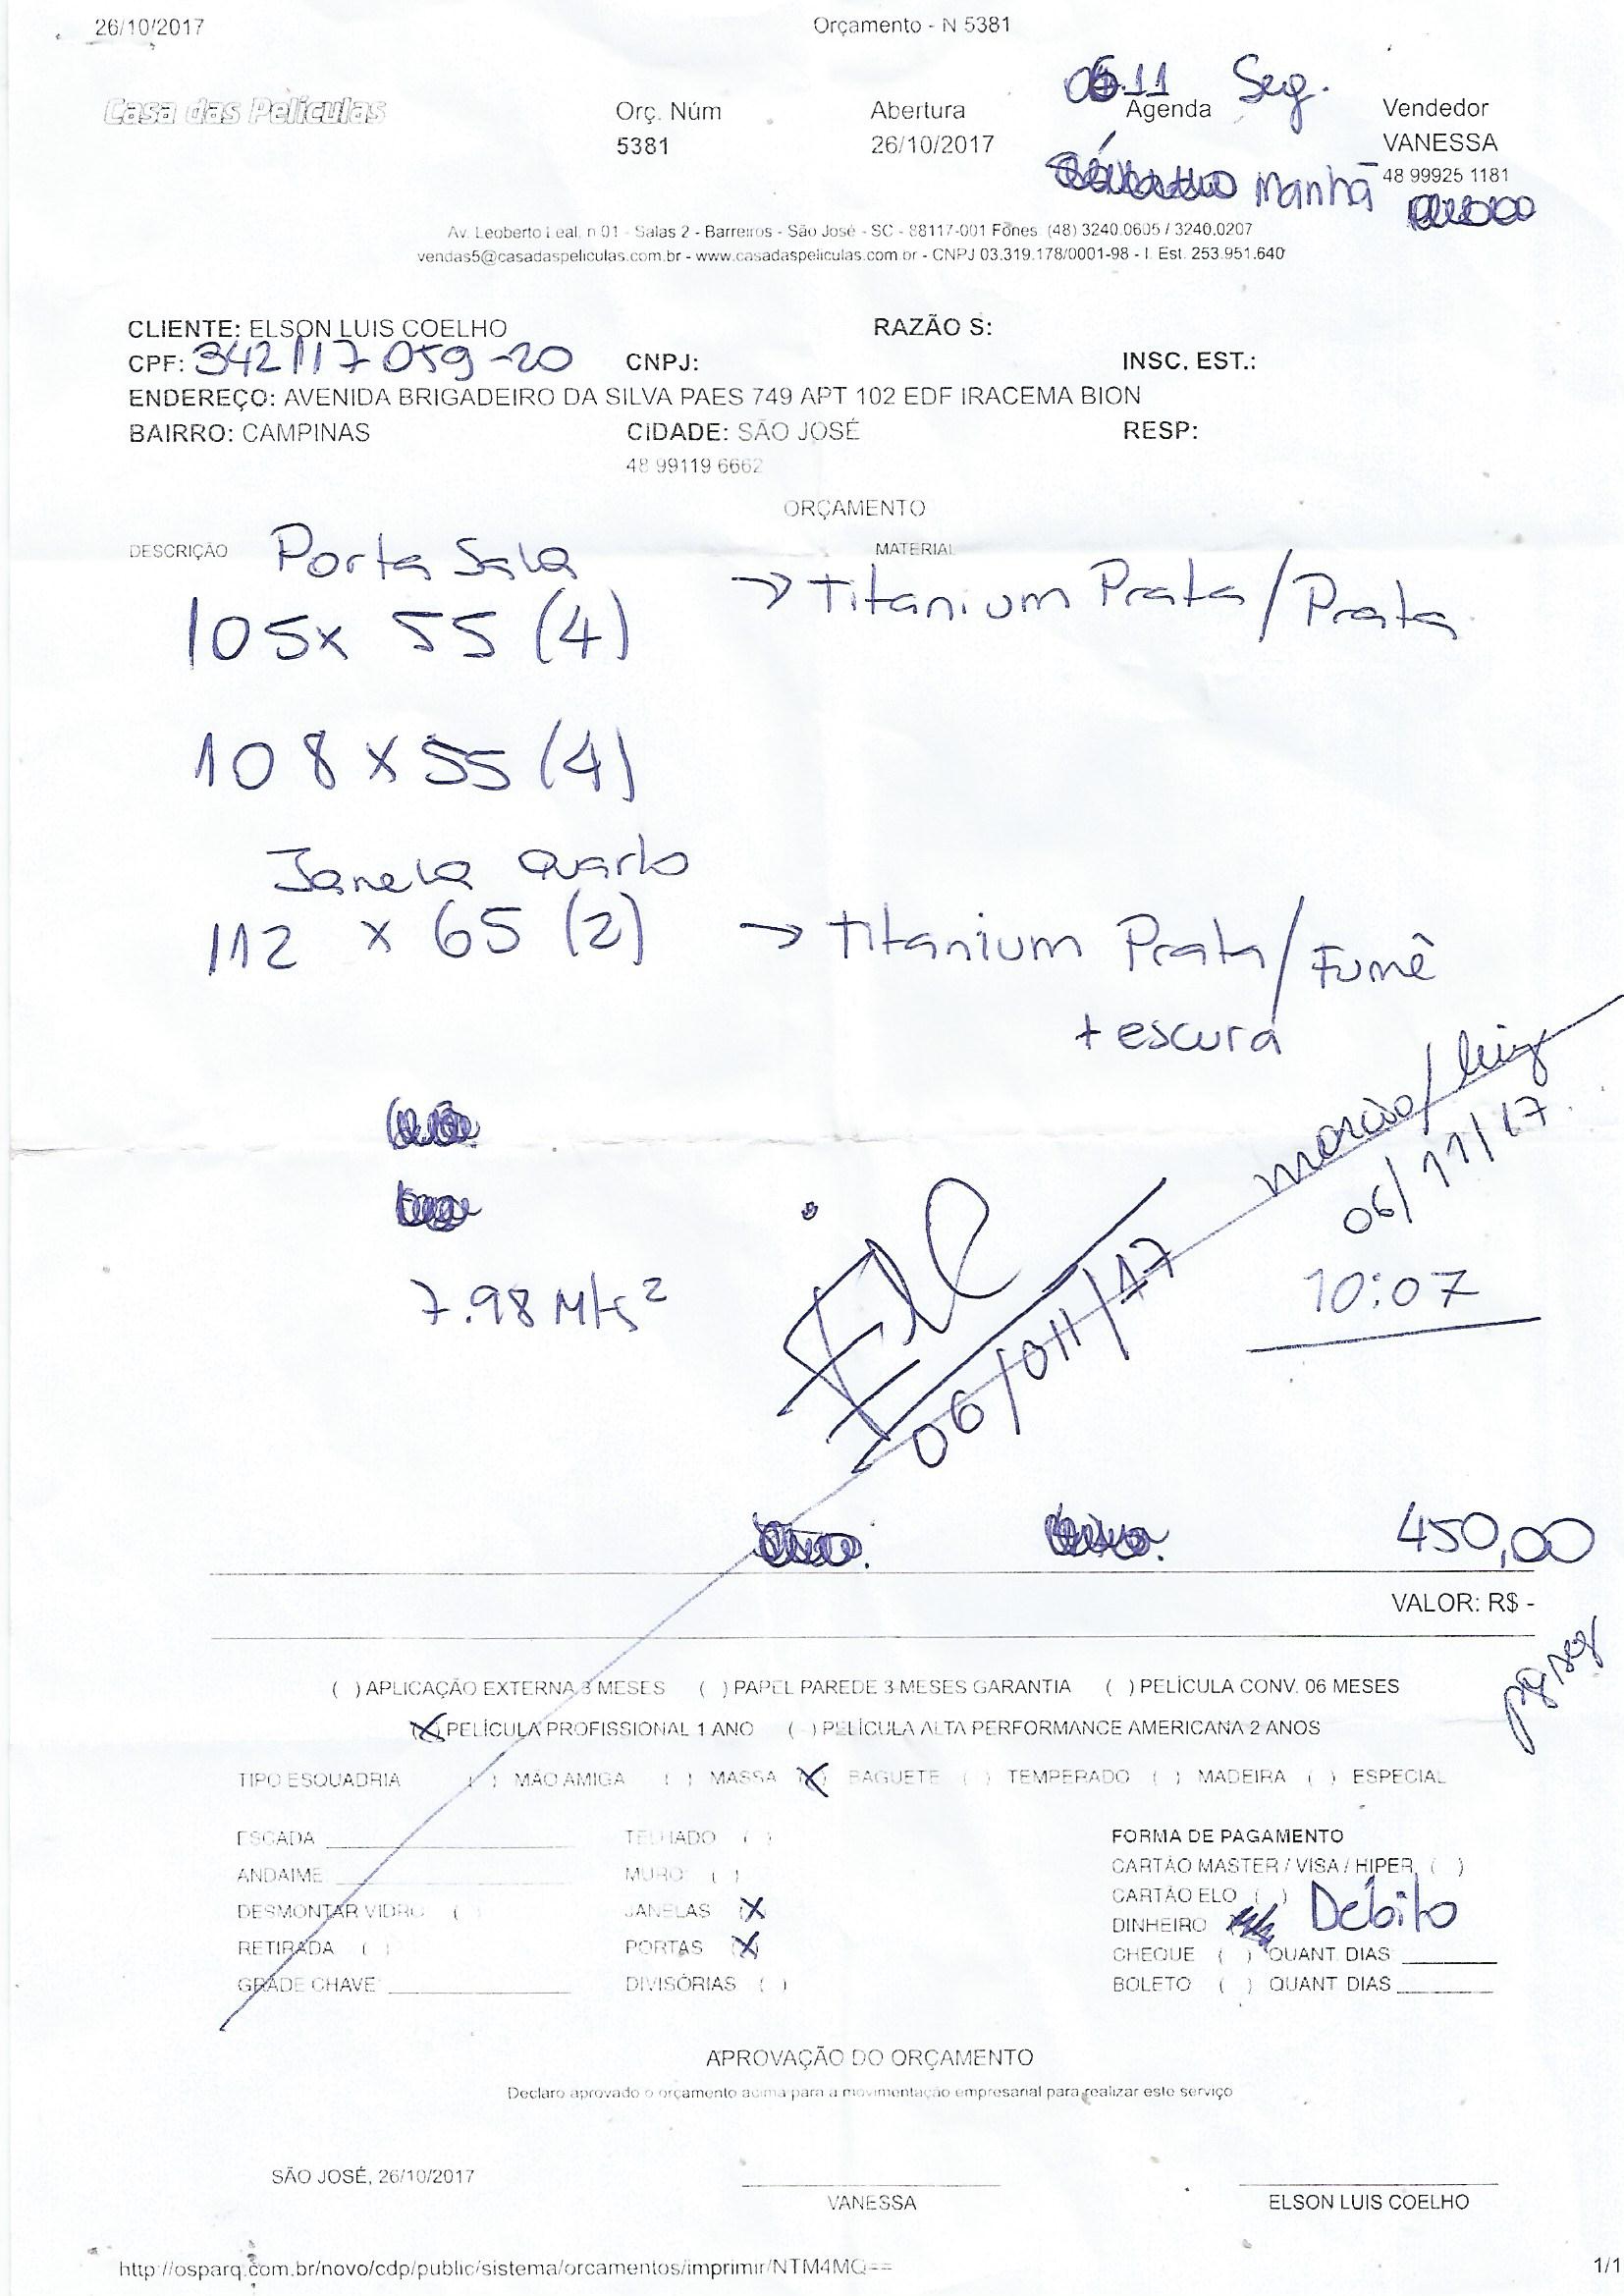 26/10/2017 Orçamento - N 5381
06.11 Seg.
Casa das Películas Orç. Núm Abertura Agenda Vendedor
5381 26/10/2017 VANESSA
Manhã 48 99925 1181
Av. Leoberto Leal, n 01 - Salas 2 - Barreiros - São José - SC - 88117-001 Fones (48) 3240.0605 / 3240.0207
vendas5@casadaspeliculas.com.br - www.casadaspeliculas.com.br - CNPJ 03.319.178/0001-98 - I. Est. 253.951.640
CLIENTE: ELSON LUIS COELHO RAZÃO S:
CPF: 342117059-20 CNPJ: INSC. EST.:
ENDEREÇO: AVENIDA BRIGADEIRO DA SILVA PAES 749 APT 102 EDF IRACEMA BION
BAIRRO: CAMPINAS CIDADE: SÃO JOSÉ RESP:
48 99119 6662
ORÇAMENTO
DESCRIÇÃO Porta Sala MATERIAL
105x 55 (4) → Titanium Prata/Prata
108 x 55 (4)
Janela Quarto
112 x 65 (2) → Titanium Prata/Fumê
+ escura
06/11/17
7.98 Mts² 06/011/17 10:07
450,00
VALOR: R$ -
( ) APLICAÇÃO EXTERNA 3 MESES ( ) PAPEL PAREDE 3 MESES GARANTIA ( ) PELÍCULA CONV. 06 MESES
(X) PELÍCULA PROFISSIONAL 1 ANO ( ) PELÍCULA ALTA PERFORMANCE AMERICANA 2 ANOS
TIPO ESQUADRIA ( ) MÃO AMIGA ( ) MASSA (X) BAGUETE ( ) TEMPERADO ( ) MADEIRA ( ) ESPECIAL
ESCADA TELHADO ( ) FORMA DE PAGAMENTO
ANDAIME MURO ( ) CARTÃO MASTER / VISA / HIPER ( )
DESMONTAR VIDRO ( ) JANELAS (X) CARTÃO ELO ( )
DINHEIRO Débito
RETIRADA ( ) PORTAS (X) CHEQUE ( ) QUANT. DIAS
GRADE CHAVE DIVISÓRIAS ( ) BOLETO ( ) QUANT DIAS
APROVAÇÃO DO ORÇAMENTO
Declaro aprovado o orçamento acima para a movimentação empresarial para realizar este serviço
SÃO JOSÉ, 26/10/2017
VANESSA ELSON LUIS COELHO
http://osparq.com.br/novo/cdp/public/sistema/orcamentos/imprimir/NTM4MQ== 1/1